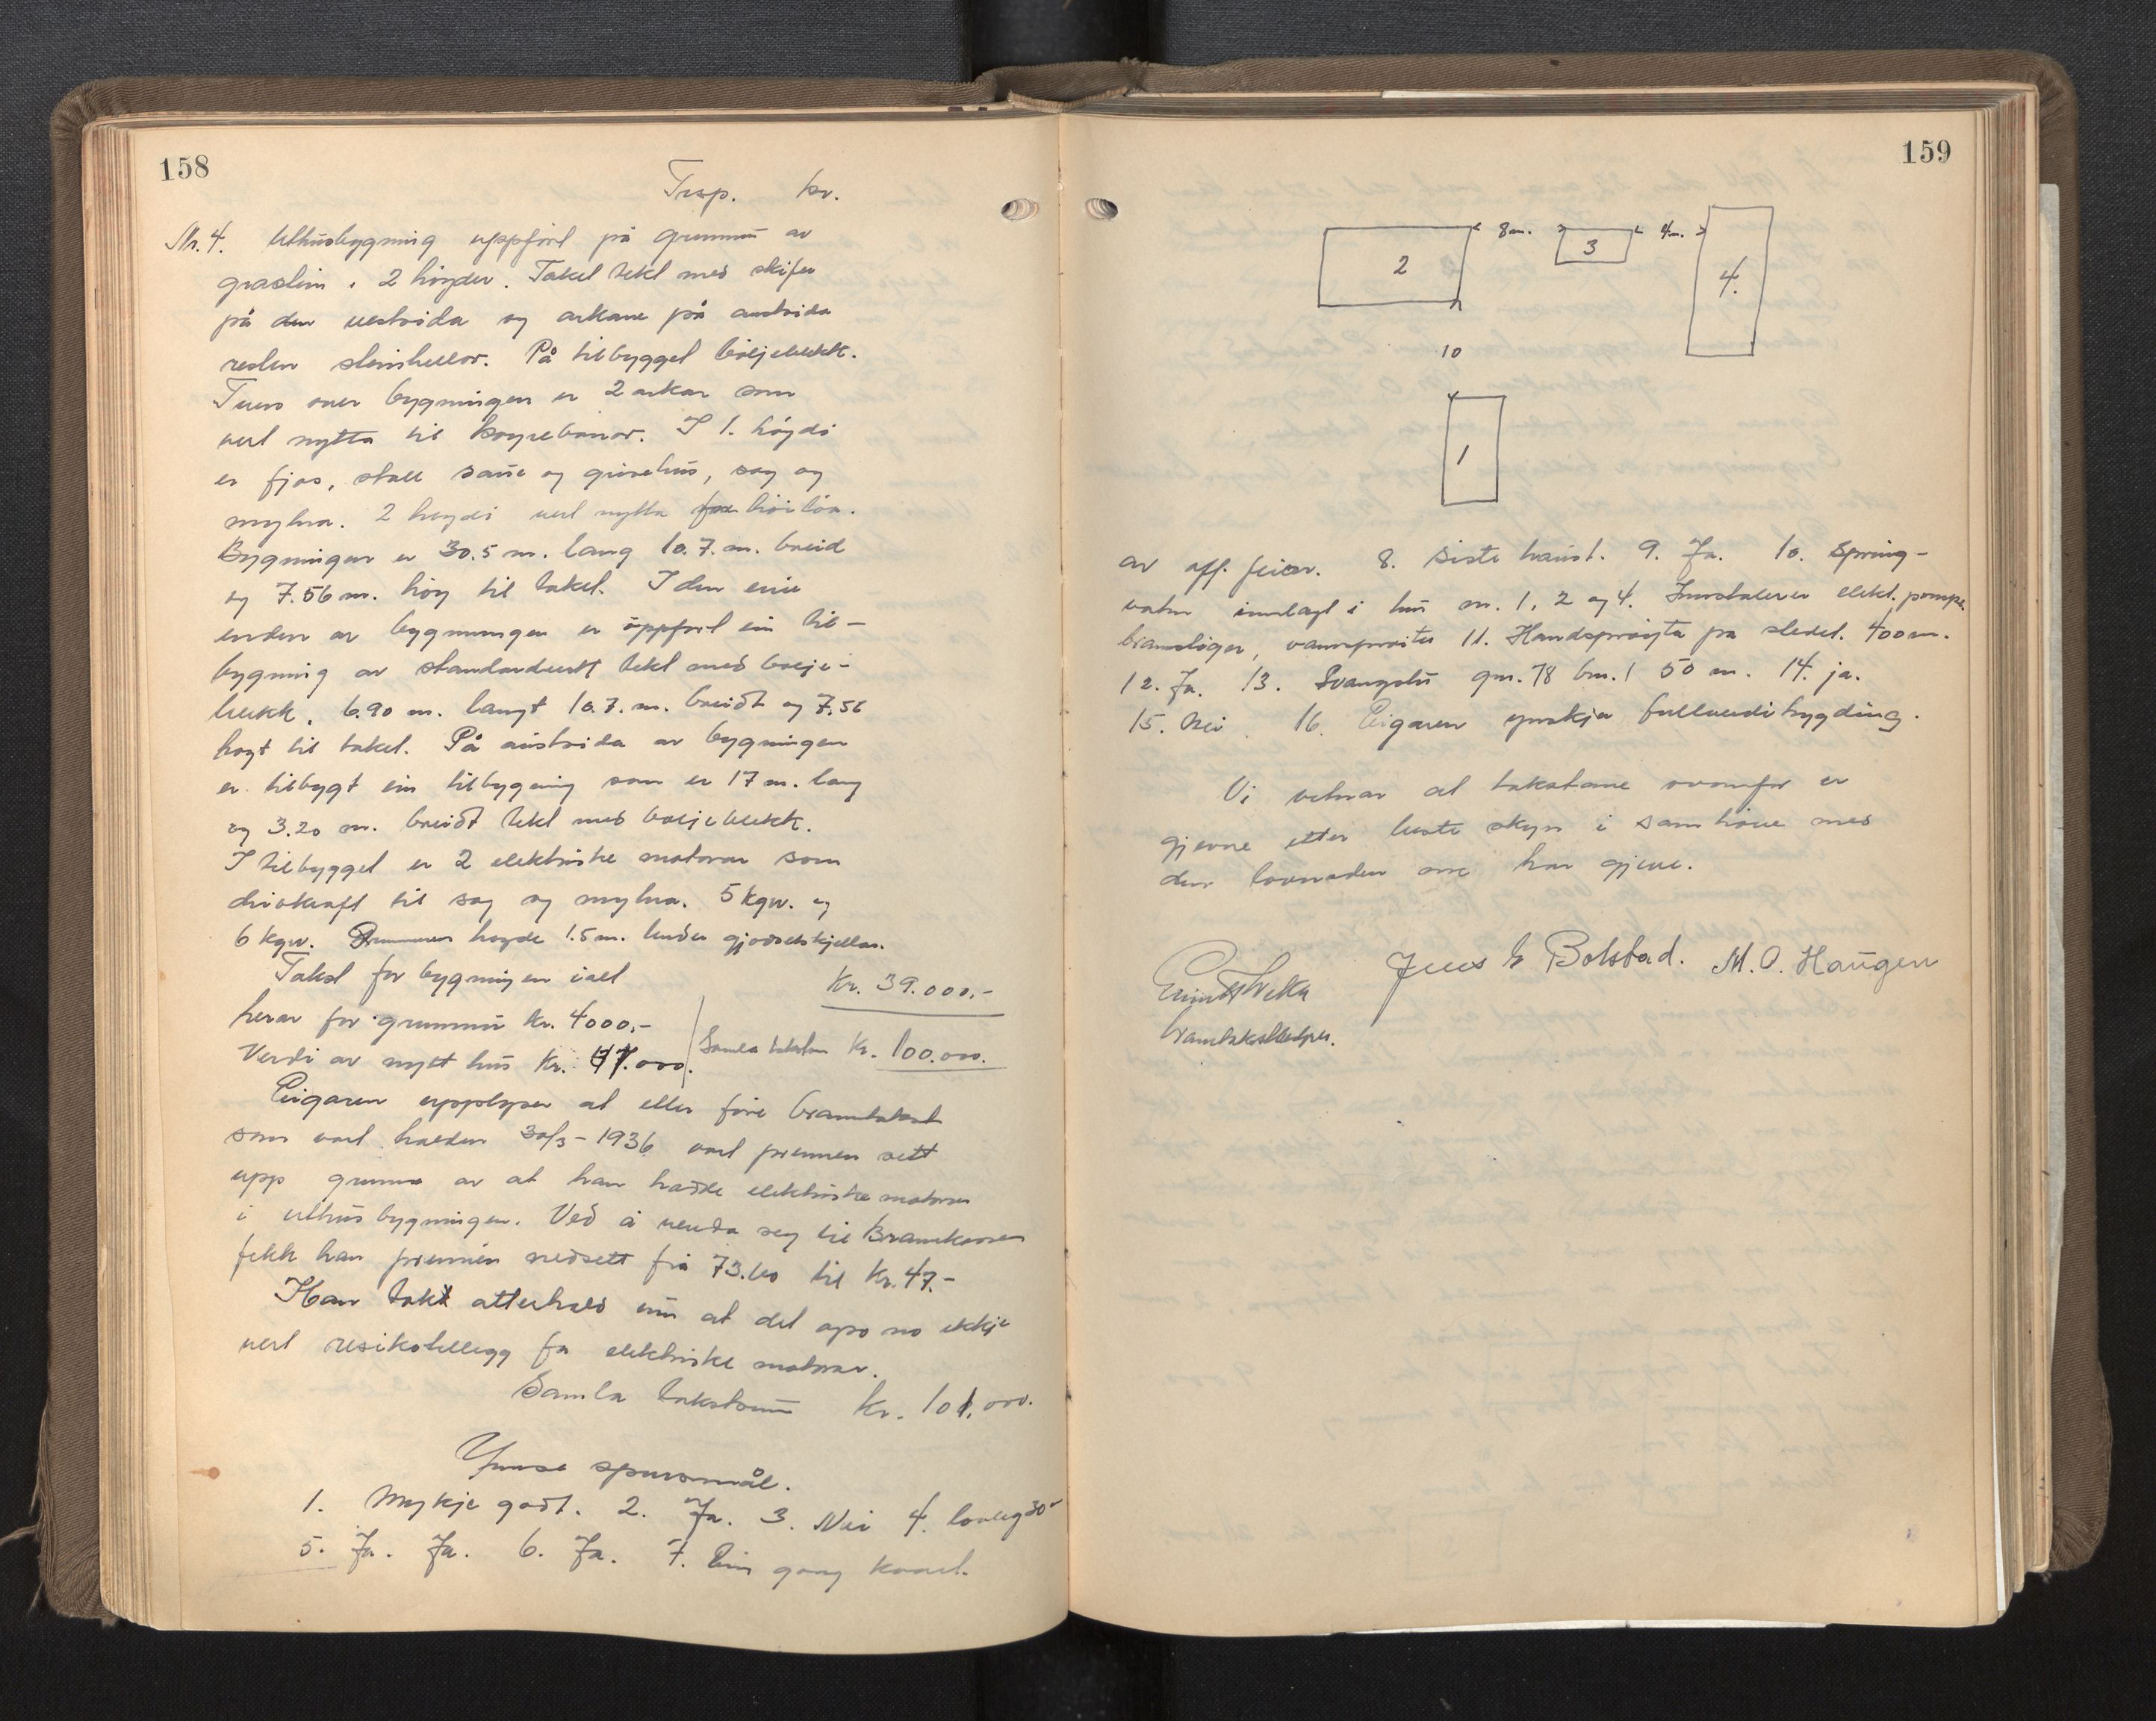 158
Trsp. kr.
Nr. 4. Uthusbygning uppført på grunnmur av
gråstein i 2 høgder. Taket tekt med skifer
på den vestsida og arkane på austsida
resten steinhellor. På tilbygget bølgeblekk.
Tvers over bygningen er 2 arkar som
vert nytta til køyrebruor. I 1. høgdi
er fjos, stall saue og grisehus, sag og
mylna. 2 høgdi vert nytta for høiløa.
Bygningen er 30.5 m. lang 10.7. m. breid
og 7.56 m. høg til taket. I den eine
enden av bygningen er uppført ein til-
bygning av standardverk tekt med bølgje-
blekk. 6.90 m. langt 10.7. m. breidt og 7.56
høgt til taket. På austsida av bygningen
er tilbygt ein tilbygning som er 17 m. lang
og 3.20 m. breidt tekt med bølgjeblekk.
I tilbygget er 2 elektriske motorar som
drivkraft til sag og mylna. 5 kgw. og
6 kgw. Grunnmuren høgde 1.5 m. under gjødselskjellar.
Takst for bygningen i alt Kr. 39.000,-
herav for grunnmur Kr. 4000,-
Verdi av nytt hus Kr. 47.000. Samla taksten Kr. 100.000.
Eigaren upplyser at etter førre branntakst
som vart halden 30/3-1936 vart premien sett
upp grunna av at han hadde elektriske motorar
i uthusbygningen. Ved å venda seg til Brannkassen
fekk han premien nedsett frå 73.60 til Kr. 47.-
Han tek atterhald um at det også no ikkje
vert resikotillegg for elektriske motorar.
Samla takstsum kr. 101.000.
Ymse spursmål.
1. Mykje godt. 2. Ja. 3. Nei 4. lovleg 30-
5. Ja. Ja. 6. Ja. 7. Ein gong kvart.
159
2 8m. 3 4m. 4.
10
1
av off. feiar. 8. Siste haust. 9. Ja. 10. Spring-
vatn innlagt i hus nr. 1, 2 og 4. Innstalerer elekt. pumpe.
brannstigar, vassprøite 11. Handsprøyta på stedet. 400 m.
12. Ja. 13. gnr. 78 bnr. 1 50 m. 14. ja.
15. Nei 16. Eigaren ynskja fullverdi trygding.
Vi vitnar at takstane ovanfor er
gjevne etter beste skyn i samhøve med
den lovnaden me har gjeve.
Jens E Bolstad. M. O. Haugen